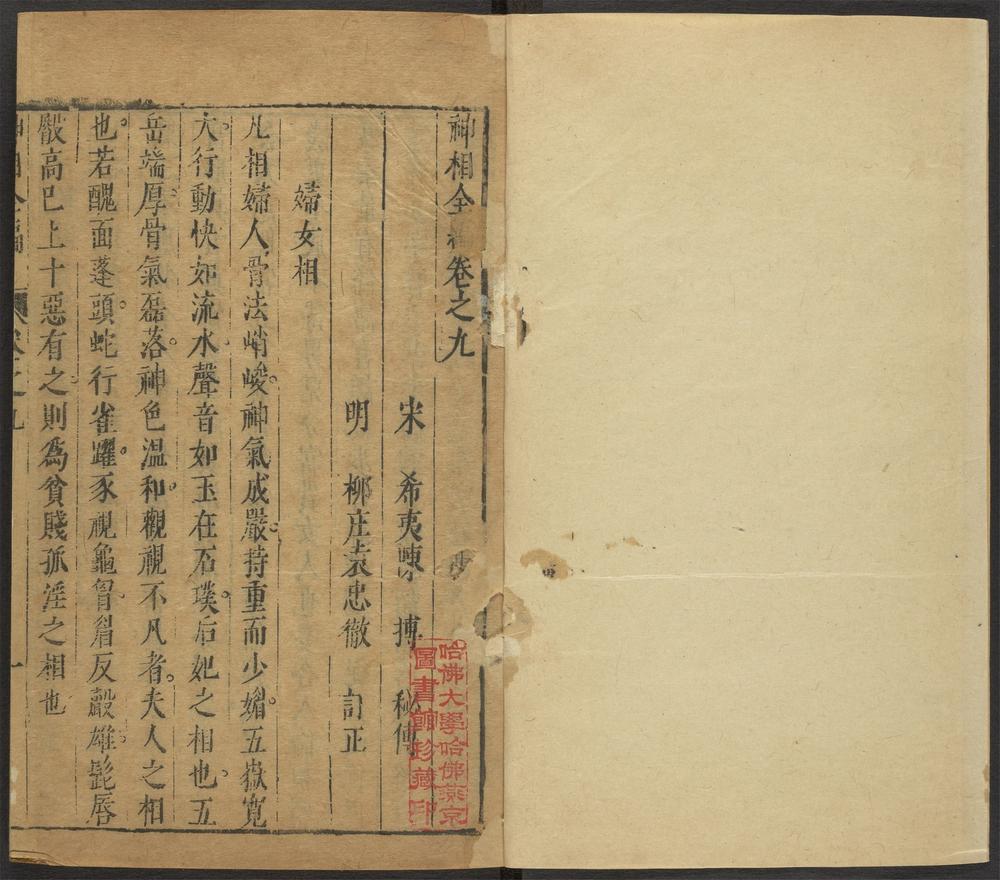 神相全編卷之九
宋 希夷陳 摶 秘傳
明 柳庄袁忠徹 訂正
婦女相
凡相婦人骨法峭峻。神氣成嚴。持重而少媚。五嶽寛
大。行動快如流水。聲音如玉在石璞。后妃之相也。五
岳端厚。骨氣磊落。神色温和。觀視不凡者。夫人之相
也。若醜面蓬頭。蛇行雀躍。豕視龜胷。眉反聲雄。髭唇
骰高巳上十惡有之。則為貧賤孤淫之相也
神相全編 卷之九 一
哈佛大學哈佛燕京
圖書館珍藏印